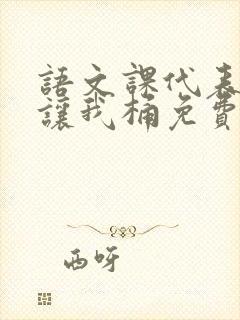 語文課代表
讓我桶免費
西呀